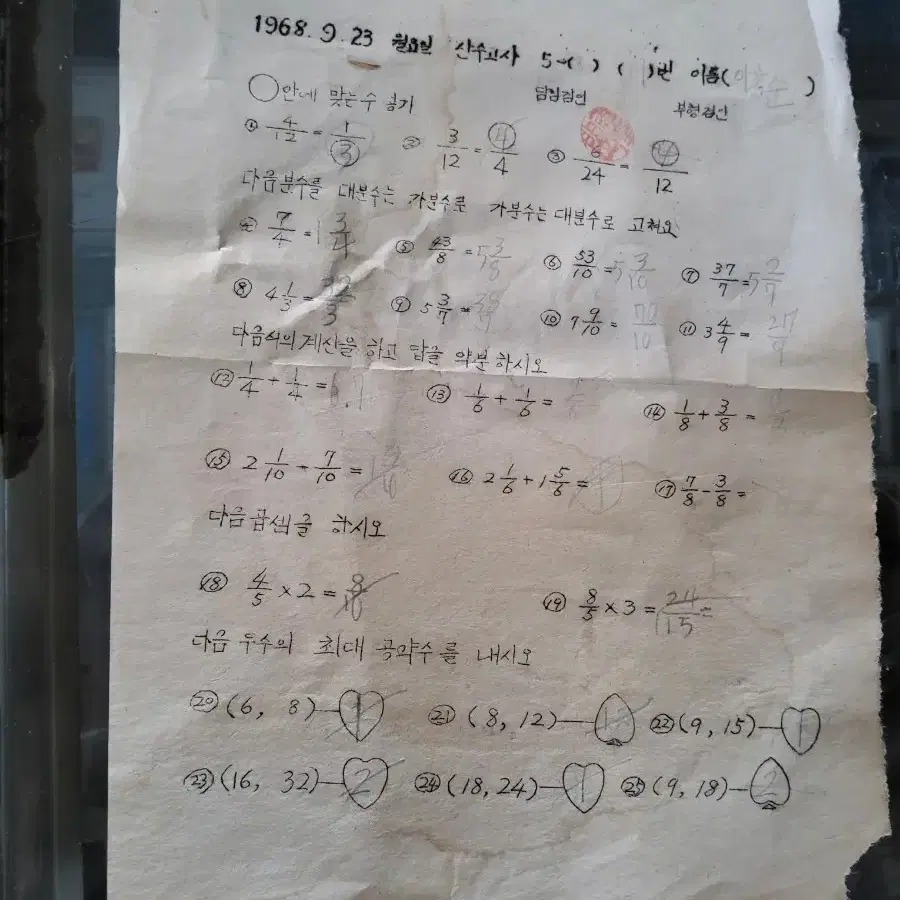 1968. 9. 23 월요일 산수고사 5-( ) ( )번 이름( 순 )
담임검인 부형검인
○안에 맞는수 넣기
① 4/12 = 1/③ ② 3/12 = ④/4 ③ 6/24 = /12
다음분수를 대분수는 가분수로 가분수는 대분수로 고쳐요
④ 7/4 = 1 3/4 ⑤ 43/8 = 5 3/8 ⑥ 53/10 = 5 3/10 ⑦ 37/7 = 5 2/7
⑧ 4 1/3 = /3 ⑨ 5 3/7 = ⑩ 7 9/10 = /10 ⑪ 3 4/9 =
다음식의 계산을 하고 답을 약분 하시오
⑫ 1/4 + 1/4 = ⑬ 1/6 + 1/6 = ⑭ 1/8 + 3/8 =
⑮ 2 1/10 - 7/10 = ⑯ 2 1/6 + 1 5/6 = ⑰ 7/8 - 3/8 =
다음 곱셈을 하시오
⑱ 4/5 × 2 = 8/10 ⑲ 8/5 × 3 = 24/15 =
다음 두수의 최대 공약수를 내시오
⑳ (6, 8) ㉑ (8, 12) ㉒ (9, 15) 1
㉓ (16, 32) 2 ㉔ (18, 24) 1 ㉕ (9, 18) 2